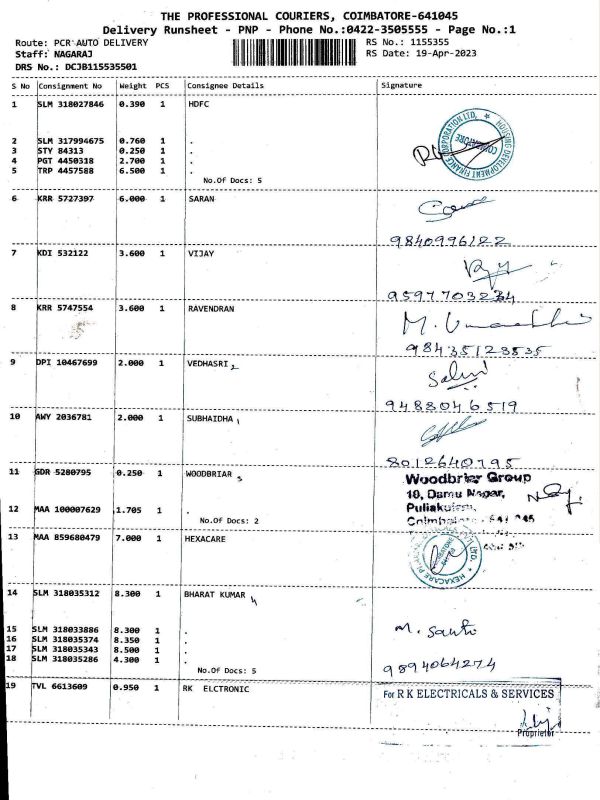 THE PROFESSIONAL COURIERS, COIMBATORE-641045
Delivery Runsheet - PNP - Phone No.:0422-3505555 - Page No.:1
Route: PCR AUTO DELIVERY RS No.: 1155355
Staff: NAGARAJ RS Date: 19-Apr-2023
DRS No.: DCJB115535501
S No Consignment No Weight PCS Consignee Details Signature
1 SLM 318027846 0.390 1 HDFC
HOUSING DEVELOPMENT FINANCE CORPORATION LTD. COIMBATORE
2 SLM 317994675 0.760 1 .
3 STY 84313 0.250 1 .
4 PGT 4450318 2.700 1 .
5 TRP 4457588 6.500 1 .
No.Of Docs: 5
6 KRR 5727397 6.000 1 SARAN
9840996122
7 KDI 532122 3.600 1 VIJAY
8 KRR 5747554 3.600 1 RAVENDRAN
9843512
9 DPI 10467699 2.000 1 VEDHASRI 2
9488046519
10 AWY 2036781 2.000 1 SUBHAIDHA 1
8012640795
11 GDR 5280795 0.250 1 WOODBRIAR 3
Woodbriar Group
10, Damu Nagar,
Puliakulam,
Coimbatore - 641 045
12 MAA 100007629 1.705 1 .
No.Of Docs: 2
13 MAA 859680479 7.000 1 HEXACARE
14 SLM 318035312 8.300 1 BHARAT KUMAR 4
15 SLM 318033886 8.300 1 .
16 SLM 318035374 8.350 1 .
17 SLM 318035343 8.500 1 .
18 SLM 318035286 4.300 1 .
No.Of Docs: 5
9894064274
19 TVL 6613609 0.950 1 RK ELCTRONIC
For R K ELECTRICALS & SERVICES
Proprietor